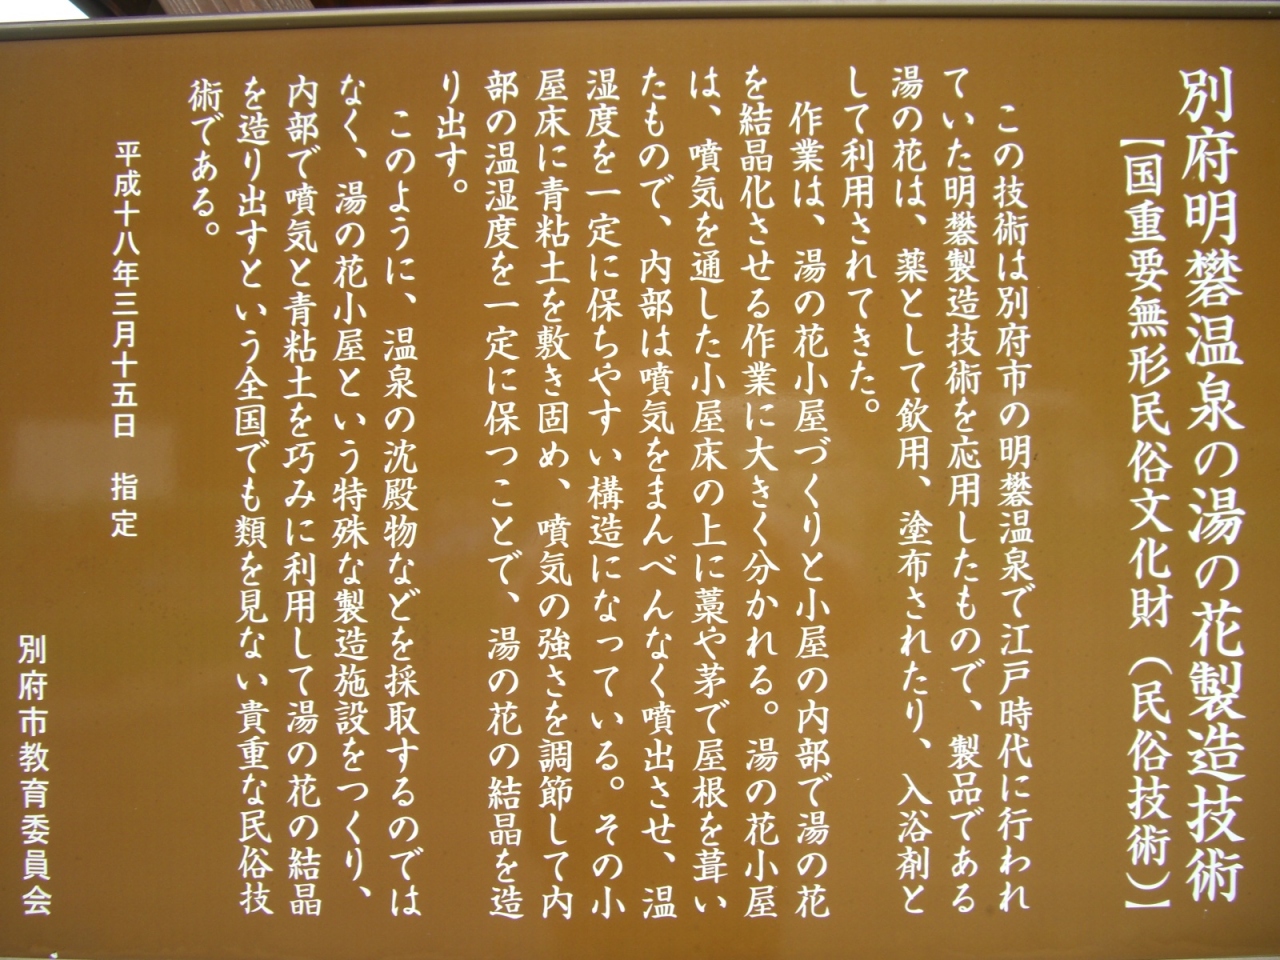 別府明礬温泉の湯の花製造技術
【国重要無形民俗文化財（民俗技術）】
この技術は別府市の明礬温泉で江戸時代に行われ
ていた明礬製造技術を応用したもので、製品である
湯の花は、薬として飲用、塗布されたり、入浴剤と
して利用されてきた。
作業は、湯の花小屋づくりと小屋の内部で湯の花
を結晶化させる作業に大きく分かれる。湯の花小屋
は、噴気を通した小屋床の上に藁や茅で屋根を葺い
たもので、内部は噴気をまんべんなく噴出させ、温
湿度を一定に保ちやすい構造になっている。その小
屋床に青粘土を敷き固め、噴気の強さを調節して内
部の温湿度を一定に保つことで、湯の花の結晶を造
り出す。
このように、温泉の沈殿物などを採取するのでは
なく、湯の花小屋という特殊な製造施設をつくり、
内部で噴気と青粘土を巧みに利用して湯の花の結晶
を造り出すという全国でも類を見ない貴重な民俗技
術である。
平成十八年三月十五日　指定
別府市教育委員会